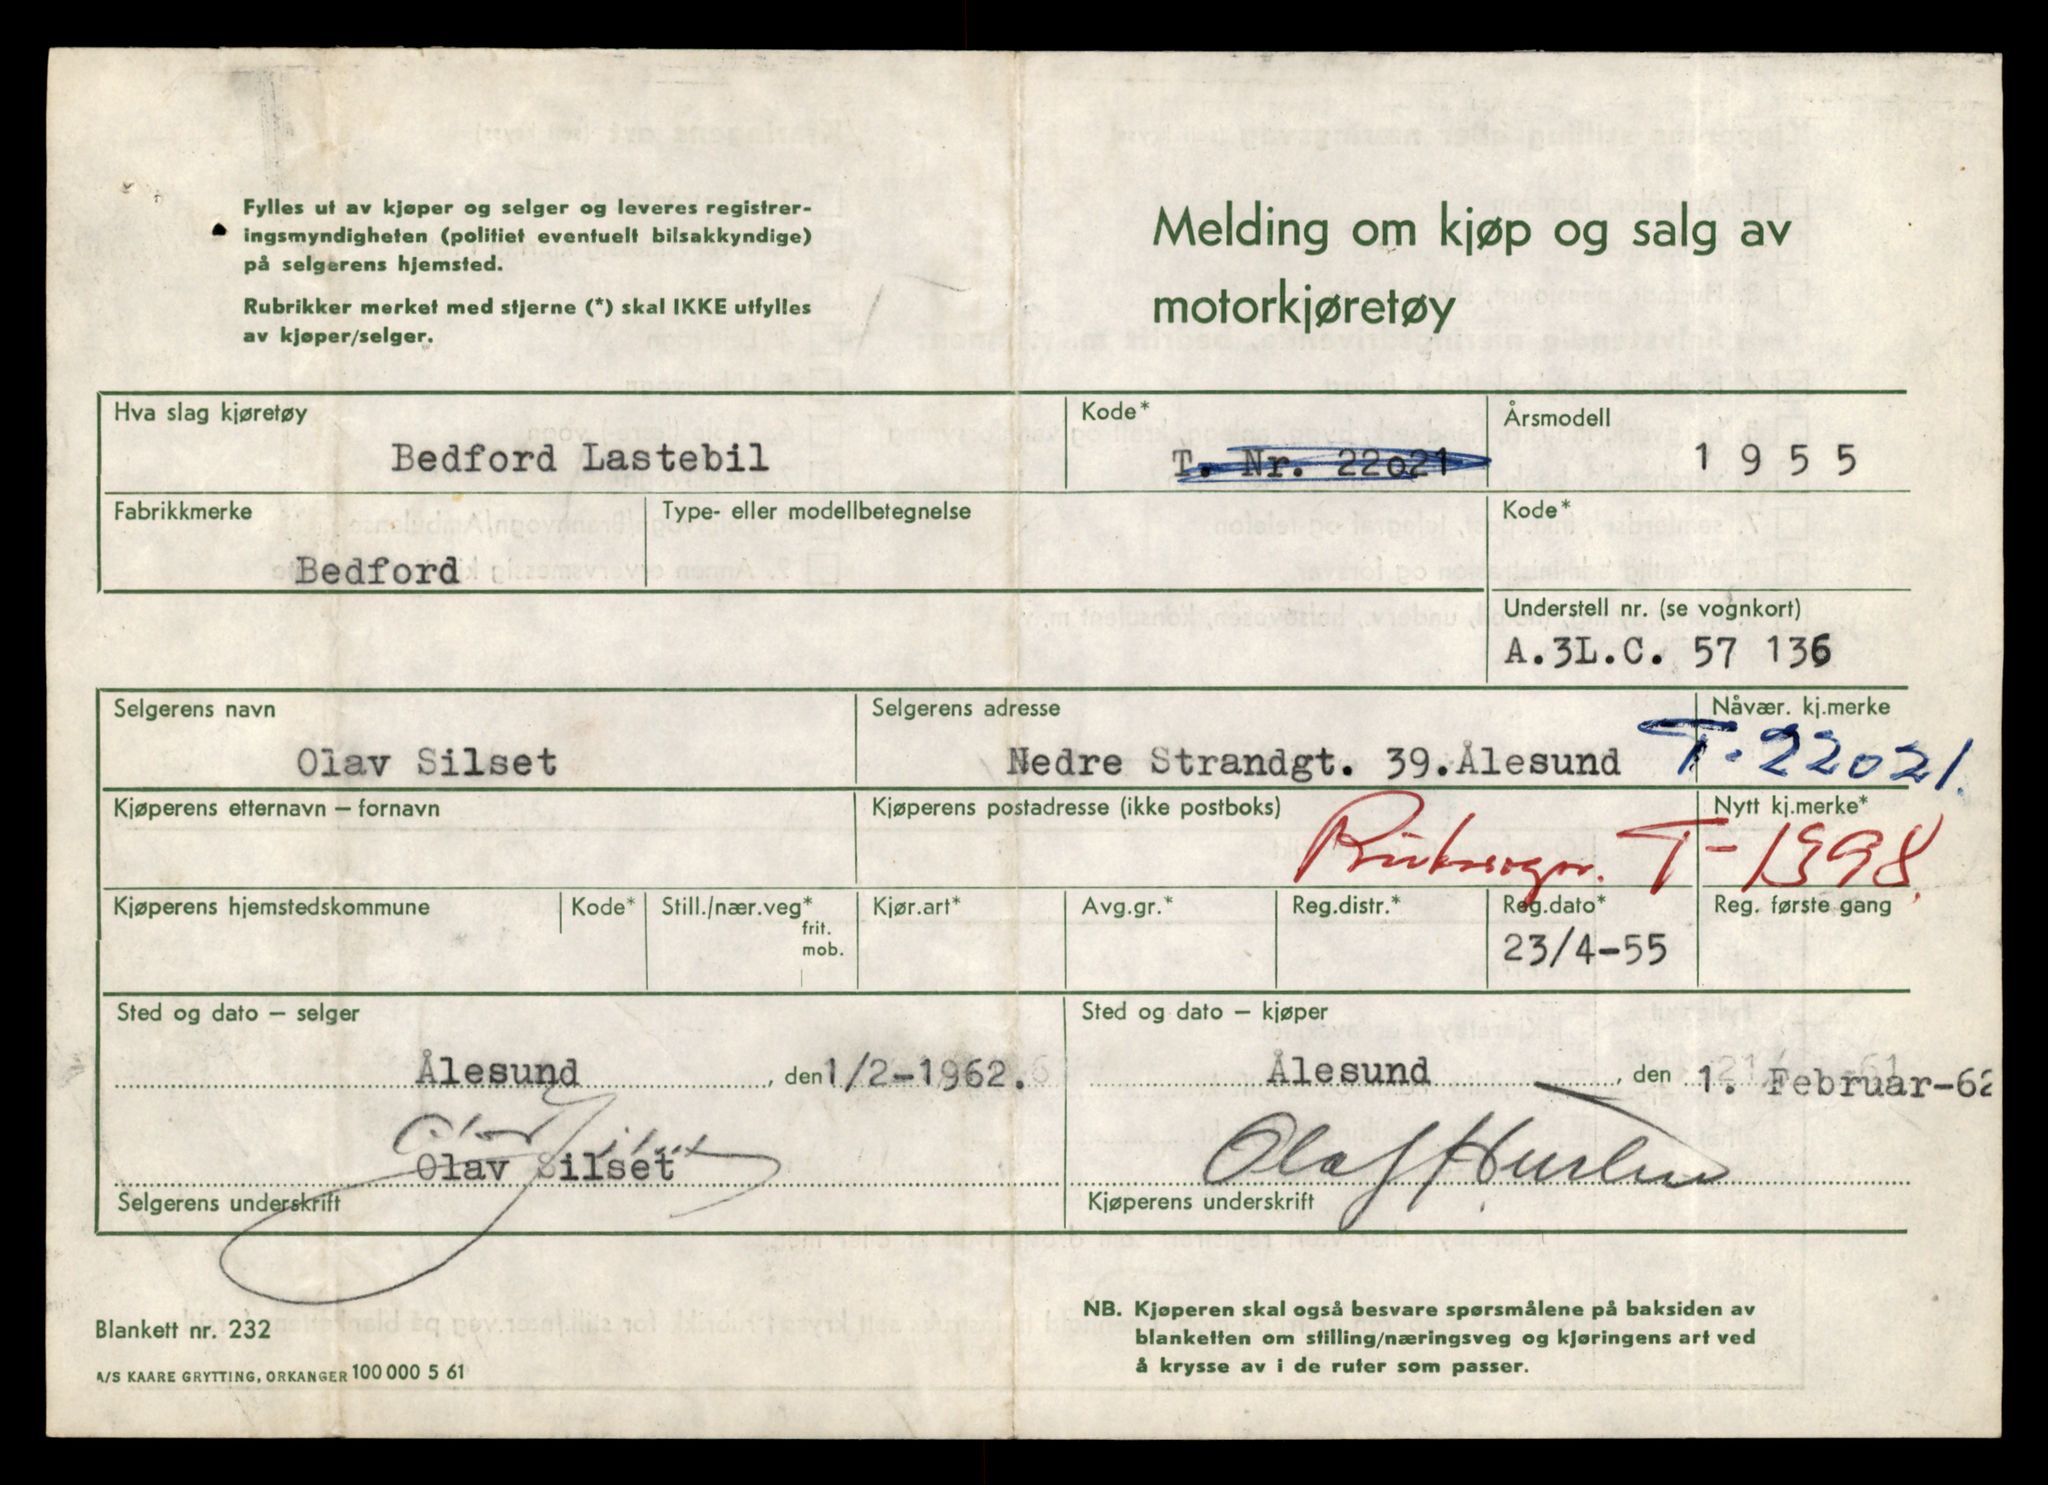 Fylles ut av kjøper og selger og leveres registrer-
ingsmyndigheten (politiet eventuelt bilsakkyndige)
på selgerens hjemsted.
Rubrikker merket med stjerne (*) skal IKKE utfylles
av kjøper/selger.
Melding om kjøp og salg av
motorkjøretøy
Hva slag kjøretøy
Bedford Lastebil
Kode*
T. Nr. 22o21
Årsmodell
1955
Fabrikkmerke
Bedford
Type- eller modellbetegnelse
Kode*
Understell nr. (se vognkort)
A.3L.C. 57 136
Selgerens navn
Olav Silset
Selgerens adresse
Nedre Strandgt. 39.Ålesund
Nåvær. kj.merke
T-22021.
Kjøperens etternavn – fornavn
Kjøperens postadresse (ikke postboks)
Nytt kj.merke*
T-1898
Kjøperens hjemstedskommune
Kode*
Still./nær.veg*
frit.
mob.
Kjør.art*
Avg.gr.*
Reg.distr.*
Reg.dato*
23/4-55
Reg. første gang
Sted og dato – selger
Ålesund, den 1/2-1962.
Sted og dato – kjøper
Ålesund, den 1. Februar-62
Olav Silset
Olav Silset
Selgerens underskrift
Olaf
Kjøperens underskrift
Blankett nr. 232
A/S KAARE GRYTTING, ORKANGER 100 000 5 61
NB. Kjøperen skal også besvare spørsmålene på baksiden av
blanketten om stilling/næringsveg og kjøringens art ved
å krysse av i de ruter som passer.